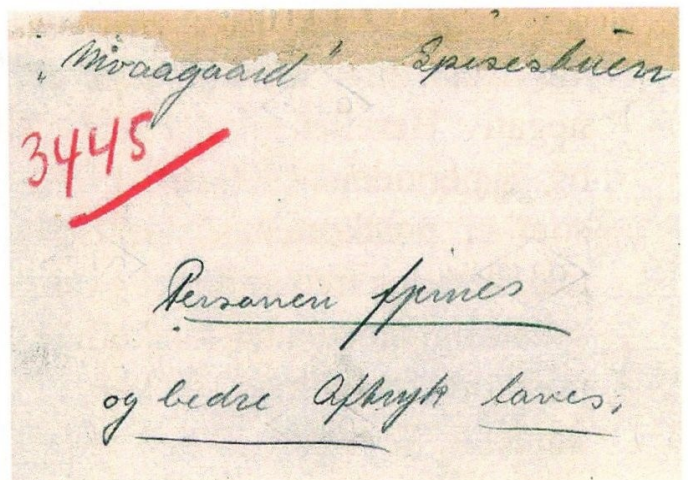 "Mvaagaard" Spisestuen
3445
Personen fjernes
og bedre Aftryk laves.